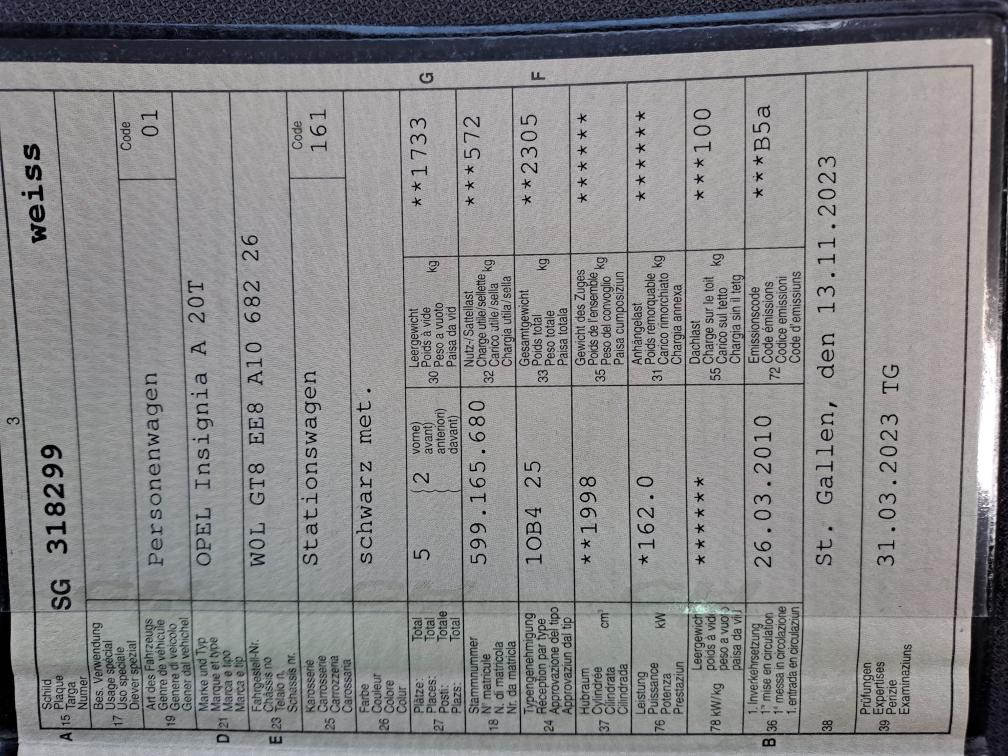 3
A 15 Schild Plaque Targa Numer SG 318299 weiss
17 Bes. Verwendung Usage spécial Uso speciale Diever spezial
19 Art des Fahrzeugs Genre de véhicule Genere di veicolo Gener dal vehichel Personenwagen Code 01
D 21 Marke und Typ Marque et type Marca e tipo Marca e tip OPEL Insignia A 20T
E 23 Fahrgestell-Nr. Châssis no Telaio n. Schassis nr. W0L GT8 EE8 A10 682 26
25 Karosserie Carrosserie Carrozzeria Carossaria Stationswagen Code 161
26 Farbe Couleur Colore Colur schwarz met.
27 Plätze: Places: Posti: Plazs: Total Total Totale Total 5 2 vorne) avant) anteriori) davant) 30 Leergewicht Poids à vide Peso a vuoto Paisa da vid kg **1733 G
18 Stammnummer N° matricule N. di matricola Nr. da matricla 599.165.680 32 Nutz-/Sattellast Charge utile/sellette Carico utile/sella Chargia utila/sella kg ***572
24 Typengenehmigung Réception par type Approvazione del tipo Approvaziun dal tip 1OB4 25 33 Gesamtgewicht Poids total Peso totale Paisa totala kg **2305 F
37 Hubraum Cylindrée Cilindrata Cilindrada cm³ **1998 35 Gewicht des Zuges Poids de l'ensemble Peso del convoglio Paisa cumposiziun kg ******
76 Leistung Puissance Potenza Prestaziun kW *162.0 31 Anhängelast Poids remorquable Carico rimorchiato Chargia annexa kg ******
78 kW/kg Leergewicht poids à vide peso a vuoto paisa da vid ****** 55 Dachlast Charge sur le toit Carico sul tetto Chargia sin il tetg kg ***100
B 36 1. Inverkehrsetzung 1re mise en circulation 1a messa in circolazione 1. entrada en circulaziun 26.03.2010 72 Emissionscode Code émissions Codice emissioni Code d'emissiuns ***B5a
38 St. Gallen, den 13.11.2023
39 Prüfungen Expertises Perizie Examinaziuns 31.03.2023 TG